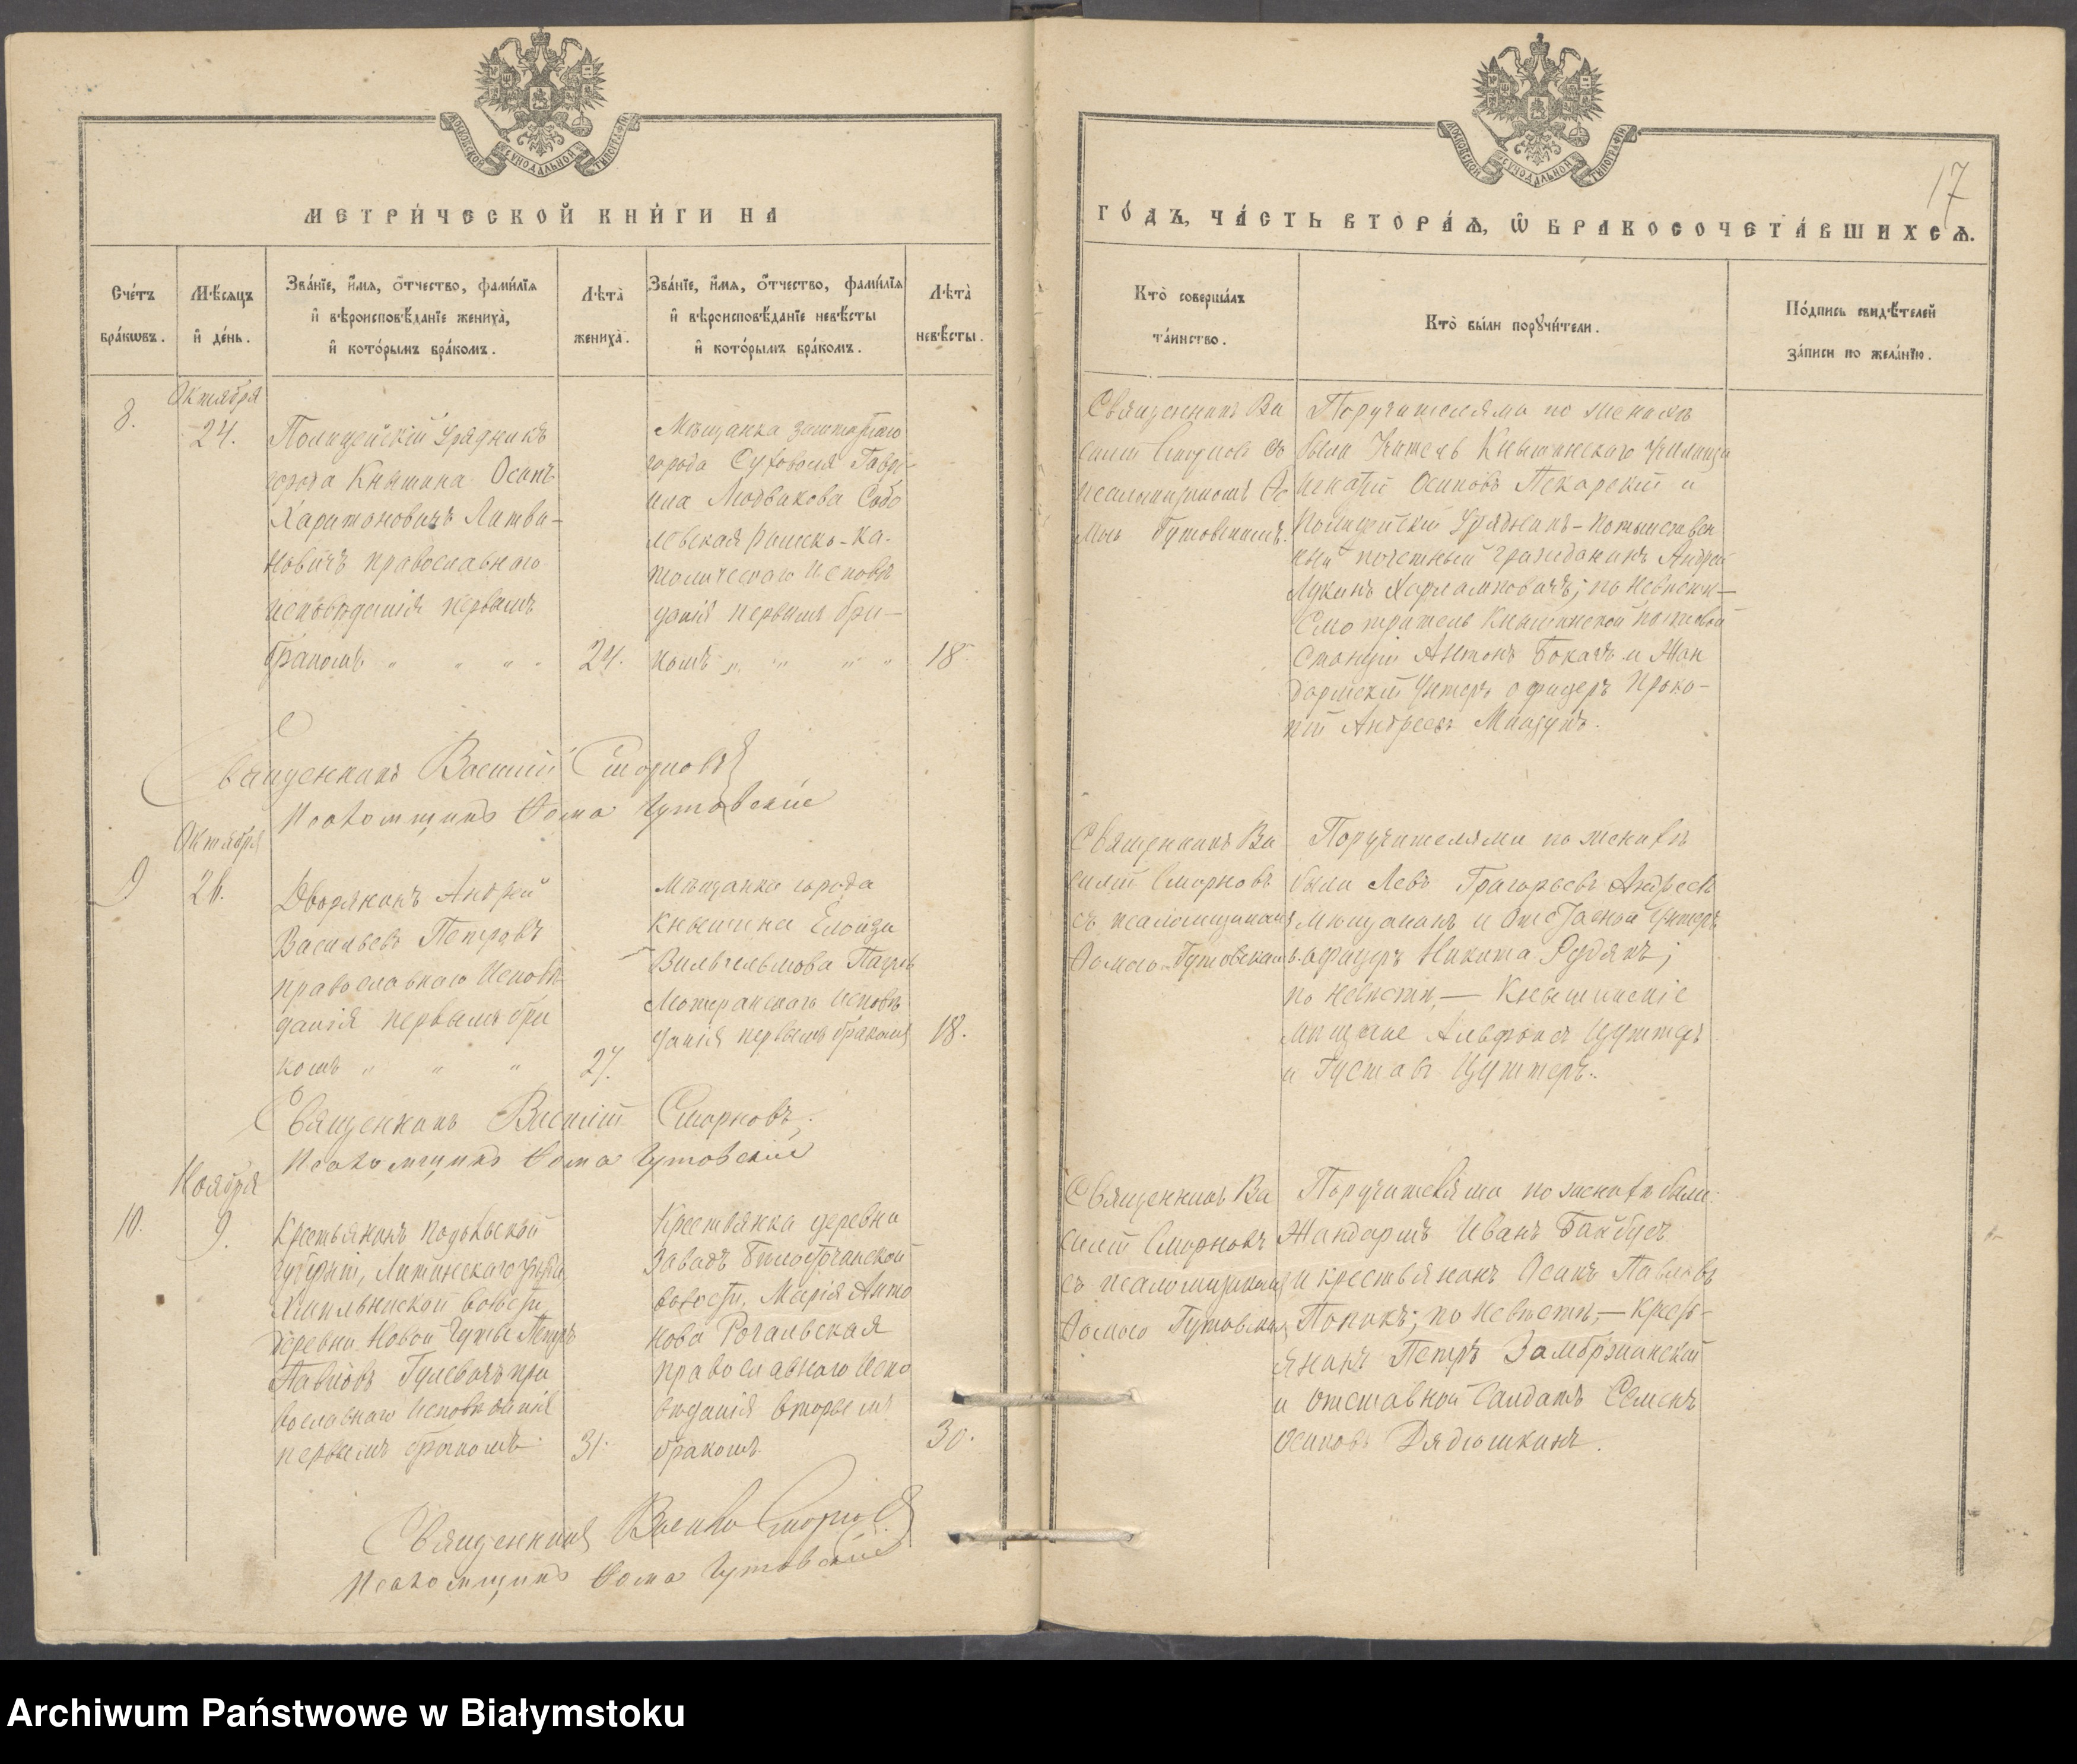 МОСКОВСКОЙ СУНОДАЛЬНОЙ ТИПОГРАФІИ
МЕТРИ́ЧЕСКОЙ КНИ́ГИ НА
Сче́тъ бра́кѡвъ.
Мѣ́сяцъ и҆ де́нь.
Зва́нїе, и҆́мѧ, о҆́тчество, фами́лїѧ
и҆ вѣроисповѣ́данїе жениха̀,
и҆ кото́рымъ бра́комъ.
Лѣта̀ жениха̀.
Зва́нїе, и҆́мѧ, о҆́тчество, фами́лїѧ
и҆ вѣроисповѣ́данїе невѣ́сты
и҆ кото́рымъ бра́комъ.
Лѣта̀ невѣ́сты.
8.
Октября
24.
Полицейскій Урядникъ
города Кнышина Осипъ
Харитоновичъ Литви-
новичъ православнаго
исповѣданія первымъ
бракомъ " " " "
24.
Мѣщанка заштатнаго
города Суховоля
Людвикова Собо
левская римско-ка-
толическаго исповѣ
данія первымъ бра-
комъ " " " "
18.
Священникъ Василій Смирновъ
Псаломщикъ Ѳома Гутовскій
Октября
9
26.
Дворянинъ Андрей
Васильевъ Петровъ
православнаго исповѣ
данія первымъ бра
комъ " " "
27.
Мѣщанка города
Кнышина
Вильгельмова
Лютеранскаго исповѣ
данія первымъ бракомъ
18.
Священникъ Василій Смирновъ.
Псаломщикъ Ѳома Гутовскій
Ноября
10.
9.
Крестьянинъ Подольской
губерніи, Литинскаго уѣзда
Хмѣльницкой волости
деревни Новой Гуты Петръ
Павловъ Гулевичъ пра
вославнаго исповѣданія
первымъ бракомъ
31.
Крестьянка деревни
Завады Бѣлосточанской
волости, Марія Анто
нова Рогальская
православнаго испо
вѣданія вторымъ
бракомъ
30.
Священникъ Василій Смирновъ
Псаломщикъ Ѳома Гутовскій
МОСКОВСКОЙ СУНОДАЛЬНОЙ ТИПОГРАФІИ
17
ГО́ДЪ, ЧА́СТЬ ВТОРА́Ѧ, Ѽ БРАКОСОЧЕТА́ВШИХСѦ.
Кто̀ соверша́лъ
та́инство.
Кто̀ бы́ли порꙋчи́тели.
По́дпись свидѣ́телей
за́писи по жела́нїю.
Священникъ Ва
силій Смирновъ съ
псаломщикомъ Ѳо
мою Гутовскимъ.
Поручителями по женихѣ
были Учитель Кнышинскаго училища
Игнатій Осиповъ Пекарскій и
Полицейскій Урядникъ - Потомствен
ный почетный гражданинъ Андрей
Лукинъ Харламповичъ; по невѣстѣ-
Смотритель Кнышинской почтовой
Станціи Антонъ Бокачъ и Жан
дармскій Унтеръ офицеръ Проко-
пій Андреевъ
Священникъ Ва
силій Смирновъ
съ псаломщикомъ
Ѳомою Гутовскимъ.
Поручителями по женихѣ
были Левъ Григорьевъ
Мѣщанинъ и отставной Унтеръ
офицеръ Никита Рудякъ;
по невѣстѣ, — Кнышинскіе
мѣщане Альфонсъ Цуттеръ
и Густавъ Цуттеръ.
Священникъ Ва
силій Смирновъ
съ псаломщикомъ
Ѳомою Гутовскимъ
Поручителями по женихѣ были:
Жандармъ Иванъ Байбусъ
и крестьянинъ Осипъ Павловъ
Попикъ; по невѣстѣ, — крест-
янинъ Петръ Замбржицкій
и отставной солдатъ Семенъ
Осиповъ Дядюшкинъ.
Archiwum Państwowe w Białymstoku